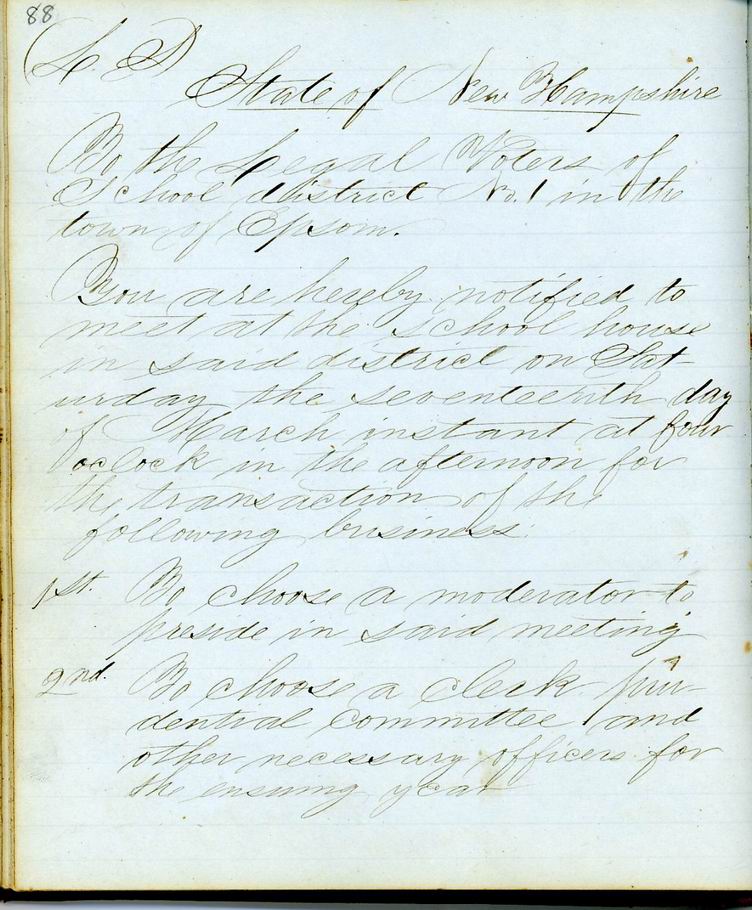 88
(L. S)
State of New Hampshire
To the Legal Voters of
School district No. 1 in the
town of Epsom.
You are hereby notified to
meet at the school house
in said district on Sat-
urday the seventeenth day
of March instant at four
oclock in the afternoon for
the transaction of the
following business.
1st. To choose a moderator to
preside in said meeting
2nd. To choose a clerk pru-
dential committee and
other necessary officers for
the ensuing year